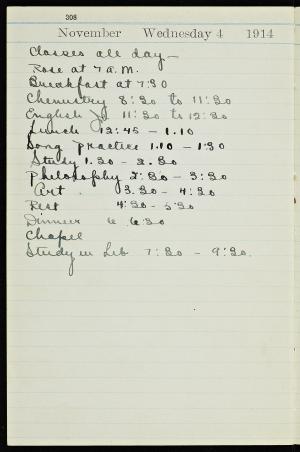 308
November Wednesday 4 1914
Classes all day —
Rose at 7 a.m.
Breakfast at 7:30
Chemistry 8:30 to 11:20
English 11:20 to 12:20
Lunch 12:45 - 1.10
Song practice 1.10 - 1:30
Study 1.30 - 2.30
Philosophy 2:30 - 3:30
Art 3.30 - 4:30
Rest 4:30 - 5:30
Dinner 6 6:30
Chapel
Study in Lib 7:30 - 9:30.